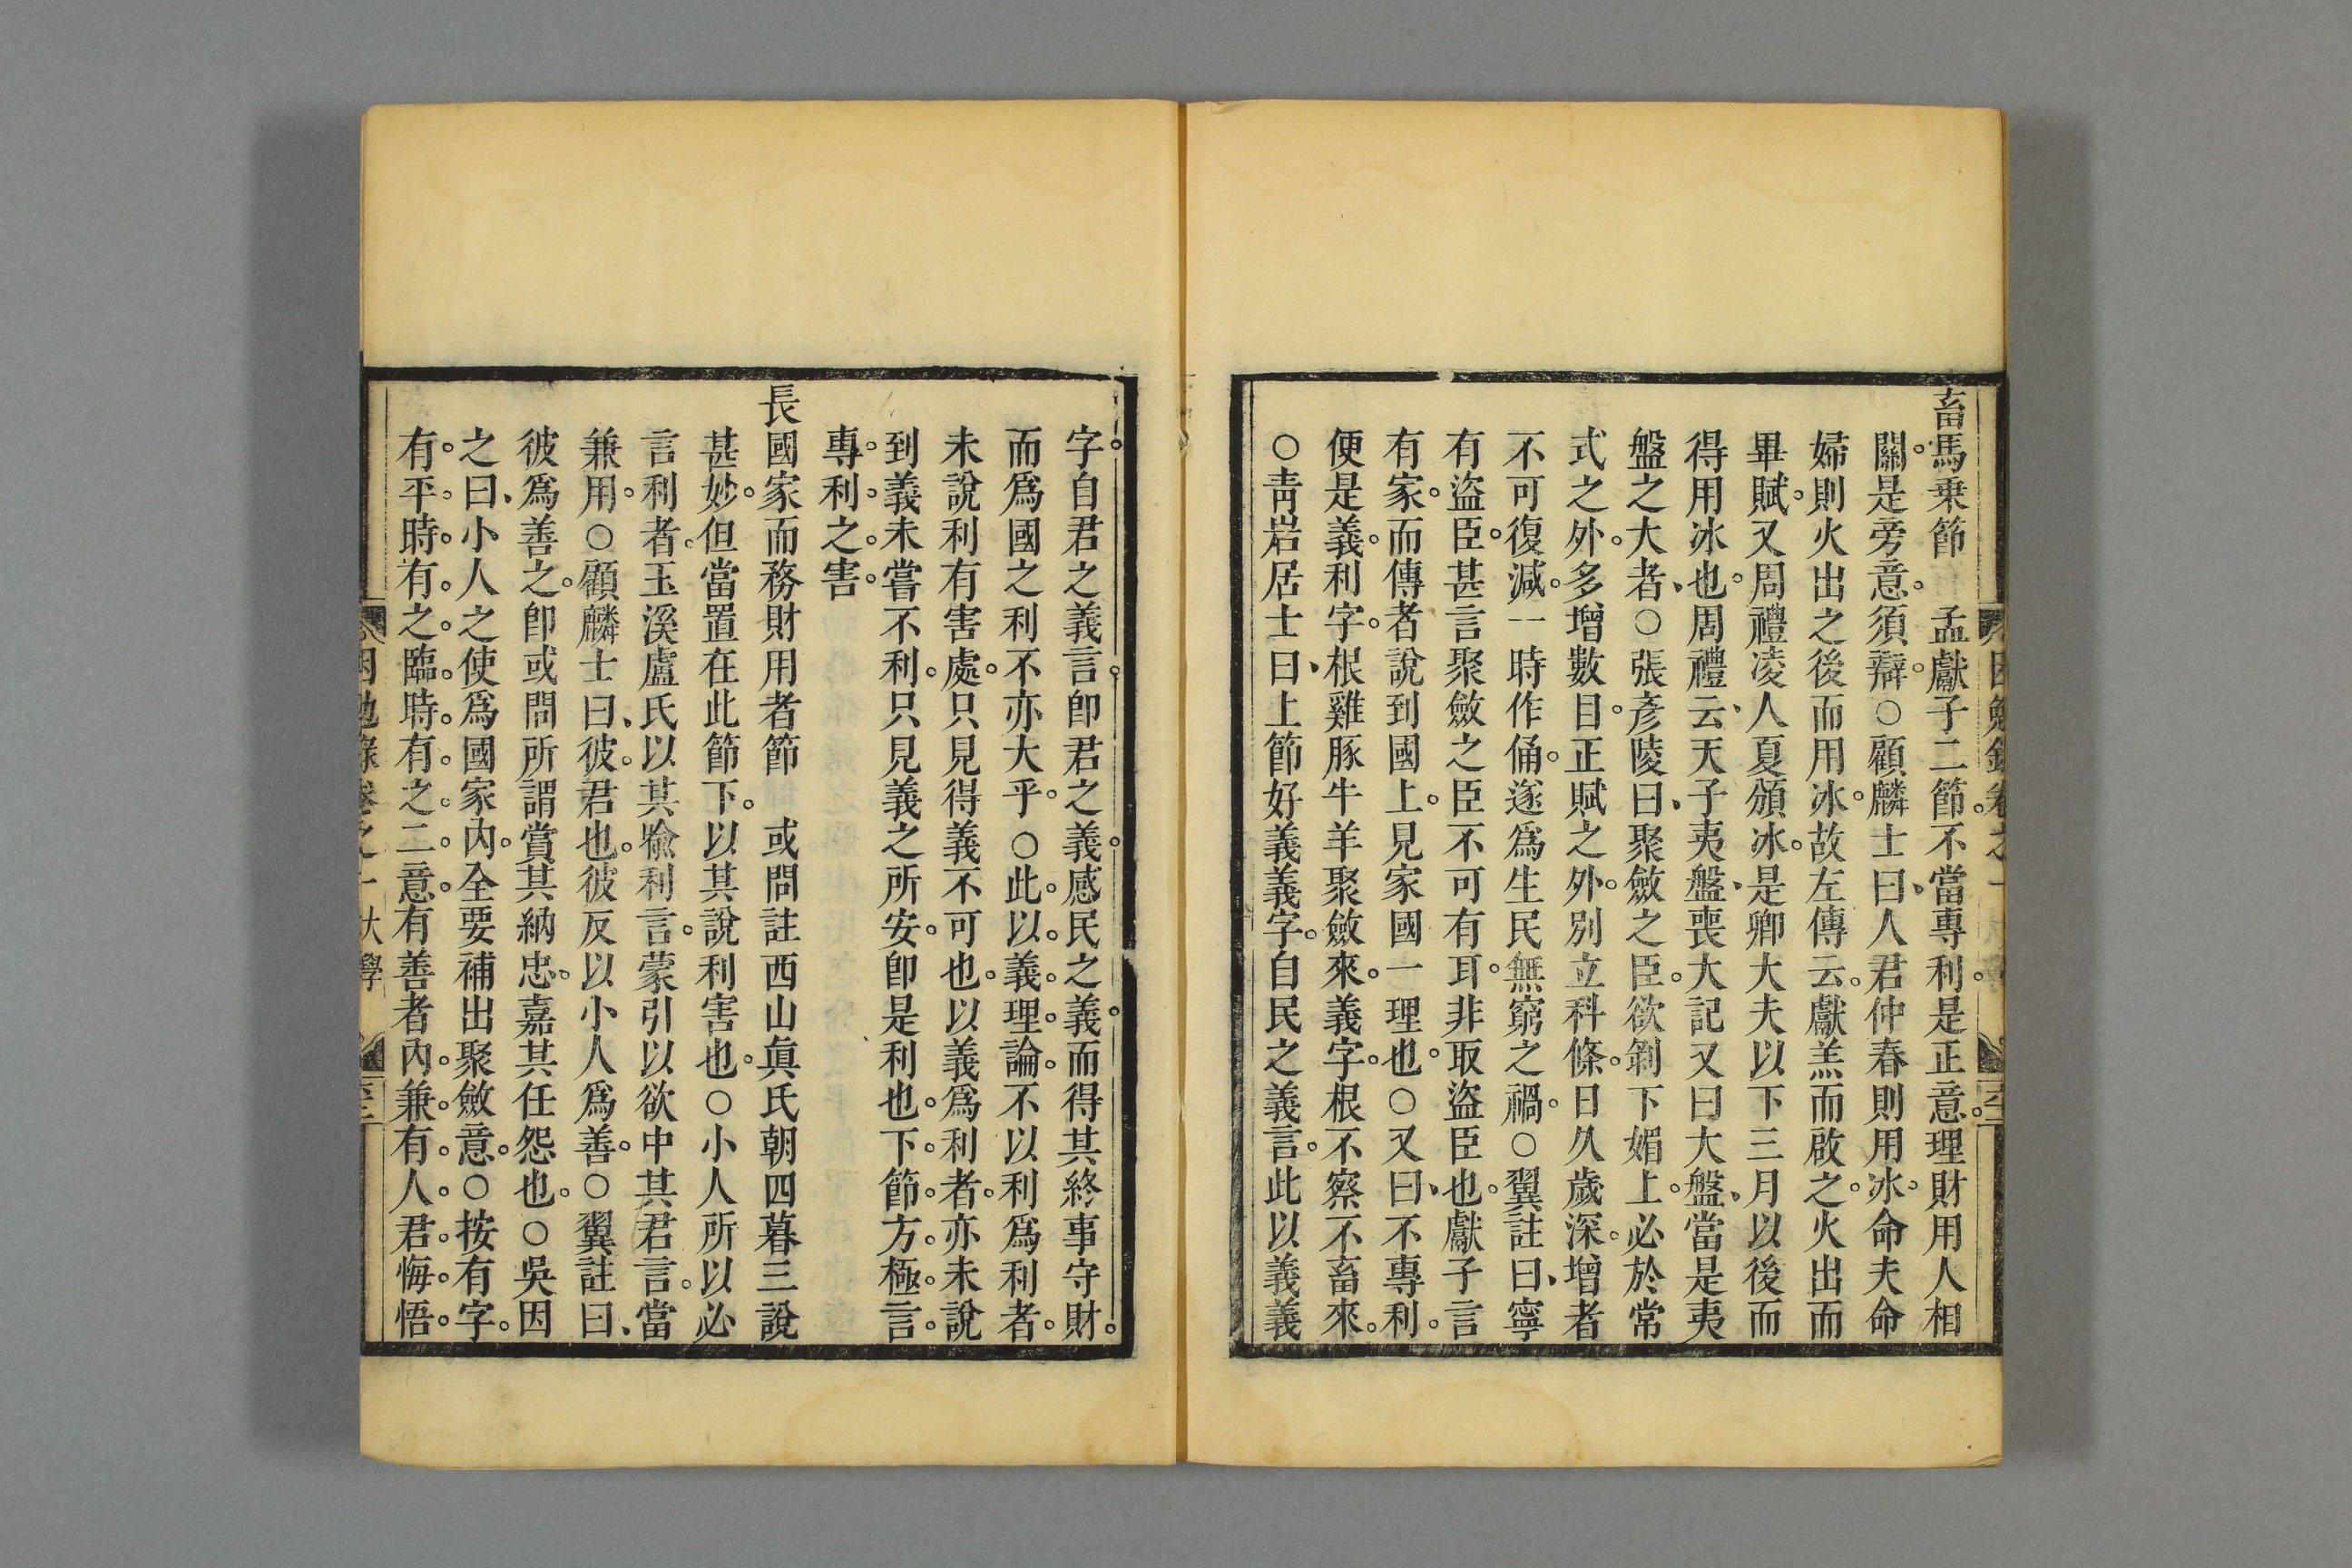 畜馬乗節　孟獻子二節。不當專利。是正意。理財用人相
關。是旁意。須辯。○顧麟士曰、人君仲春則用冰。命夫命
婦則火出之後而用冰。故左傳云。獻羔而啟之。火出而
畢賦。又周禮凌人夏頒冰。是卿大夫以下三月以後而
得用冰也。周禮云、天子夷盤、喪大記又曰大盤、當是夷
盤之大者、○張彥陵曰、聚斂之臣。欲剝下媚上。必於常
式之外。多增數目。正賦之外。別立科條。日久歲深。增者
不可復減。一時作俑。遂爲生民無窮之禍。○翼註曰、寧
有盜臣。甚言聚斂之臣不可有耳。非取盜臣也。獻子言
有家。而傳者說到國上。見家國一理也。○又曰、不專利。
便是義。利字。根雞豚牛羊聚斂來。義字。根不察不畜來。
○靑岩居士曰、上節好義義字。自民之義言。此以義義
字。自君之義言。卽君之義。感民之義。而得其終事守財。
而爲國之利不亦大乎。○此。以。義。理。論。不以利爲利者。
未說利有害處。只見得義不可也。以義爲利者。亦未說
到義未嘗不利。只見義之所安。卽是利也。下。節。方。極。言。
專。利。之。害。
長國家而務財用者節　或問註西山眞氏朝四暮三說
甚妙。但當置在此節下。以其說利害也。○小人所以必
言利者。玉溪盧氏以其喻利言。蒙引以欲中其君言。當
兼用。○顧麟士曰、彼。君也。彼反以小人爲善。○翼註曰、
彼爲善之。卽或問所謂賞其納忠。嘉其任怨也。○吳因
之曰、小人之使爲國家內。全要補出聚斂意。○按有字。
有。平。時。有。之。臨。時。有。之。二。意。有善者內。兼。有。人。君。悔。悟。
困勉錄卷之一　大學